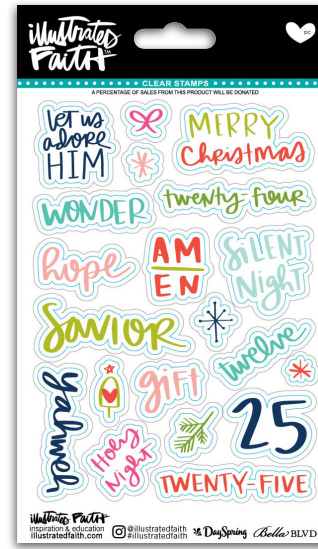 illustrated
FAITH™
pc
CLEAR STAMPS
A PERCENTAGE OF SALES FROM THIS PRODUCT WILL BE DONATED
LET US
adore
HIM
MERRY
Christmas
WONDER
twenty-four
hope
AM
EN
SiLENT
Night
SAVIOR
twelve
yahweh
giFt
Holy
Night
25
TWENTY-FIVE
illustrated FAITH
inspiration & education
illustratedfaith.com
@illustratedfaith
#illustratedfaith
DaySpring
Bella BLVD